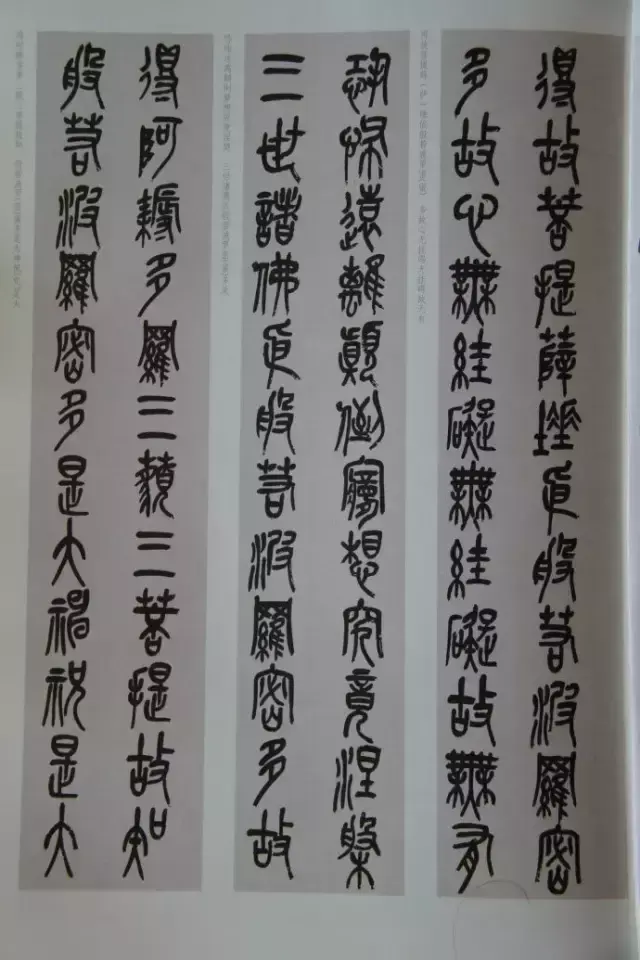 得故菩提薩埵依般若波羅密
多故心無絓礙無絓礙故無有
恐怖遠離顛倒夢想究竟涅槃
三世諸佛依般若波羅密多故
得阿耨多羅三藐三菩提故知
般若波羅密多是大神祝是大